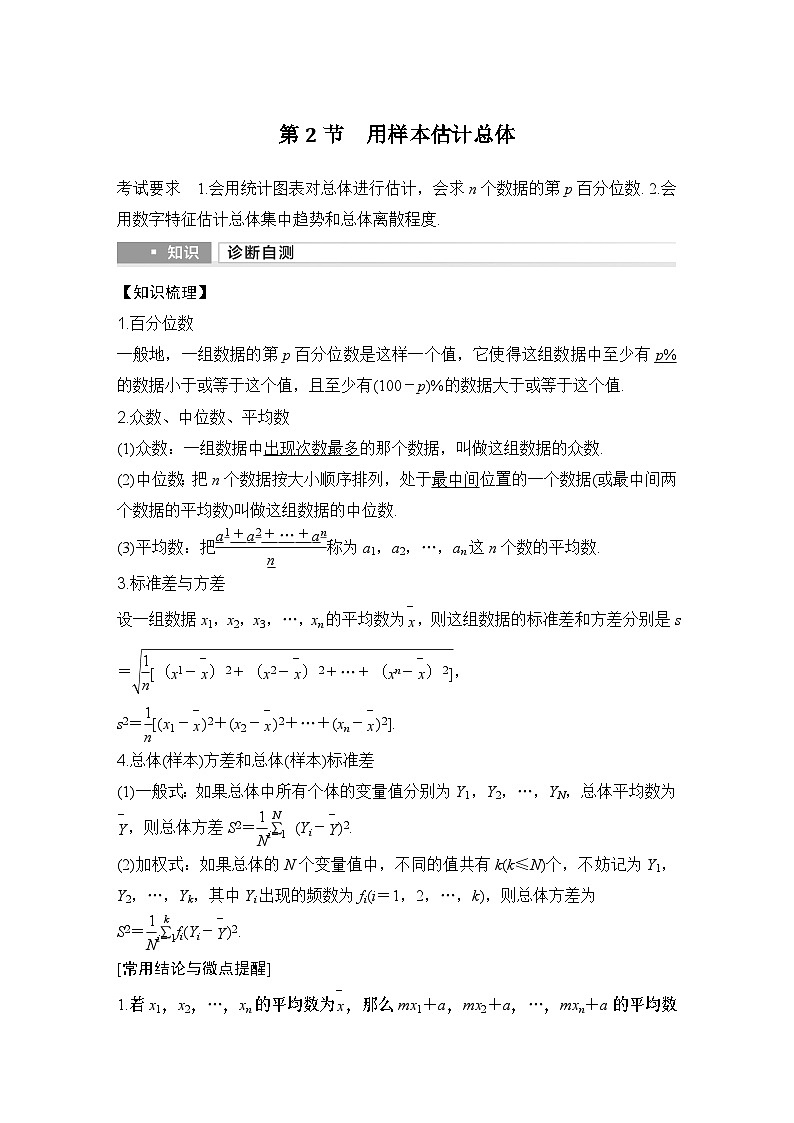 第 2 节　用样本估计总体
考试要求　1.会用统计图表对总体进行估计，会求 n 个数据的第 p 百分位数. 2.会
用数字特征估计总体集中趋势和总体离散程度.
知识 诊断自测
【知识梳理】
1.百分位数
一般地，一组数据的第 p 百分位数是这样一个值，它使得这组数据中至少有 p%
的数据小于或等于这个值，且至少有(100－p)%的数据大于或等于这个值.
2.众数、中位数、平均数
(1)众数：一组数据中出现次数最多的那个数据，叫做这组数据的众数.
(2)中位数：把 n 个数据按大小顺序排列，处于最中间位置的一个数据(或最中间两
个数据的平均数)叫做这组数据的中位数.
(3)平均数：把\frac{a1＋a2＋…＋an}{n}称为 a1，a2，…，an 这 n 个数的平均数.
3.标准差与方差
设一组数据 x1，x2，x3，…，xn 的平均数为\bar{x}，则这组数据的标准差和方差分别是 s
＝\sqrt{\frac{1}{n}[（x1－\bar{x}）2＋（x2－\bar{x}）2＋…＋（xn－\bar{x}）2]}，
s2＝\frac{1}{n}[(x1－\bar{x})2＋(x2－\bar{x})2＋…＋(xn－\bar{x})2].
4.总体(样本)方差和总体(样本)标准差
(1)一般式：如果总体中所有个体的变量值分别为 Y1，Y2，…，YN，总体平均数为
\bar{Y}，则总体方差 S2＝\frac{1}{N}\sum_{i=1}^{N} (Yi－\bar{Y})2.
(2)加权式：如果总体的 N 个变量值中，不同的值共有 k(k≤N)个，不妨记为 Y1，
Y2，…，Yk，其中 Yi 出现的频数为 fi(i＝1，2，…，k)，则总体方差为
S2＝\frac{1}{N}\sum_{i=1}^{k}fi(Yi－\bar{Y})2.
[常用结论与微点提醒]
1.若 x1，x2，…，xn 的平均数为\bar{x}，那么 mx1＋a，mx2＋a，…，mxn＋a 的平均数